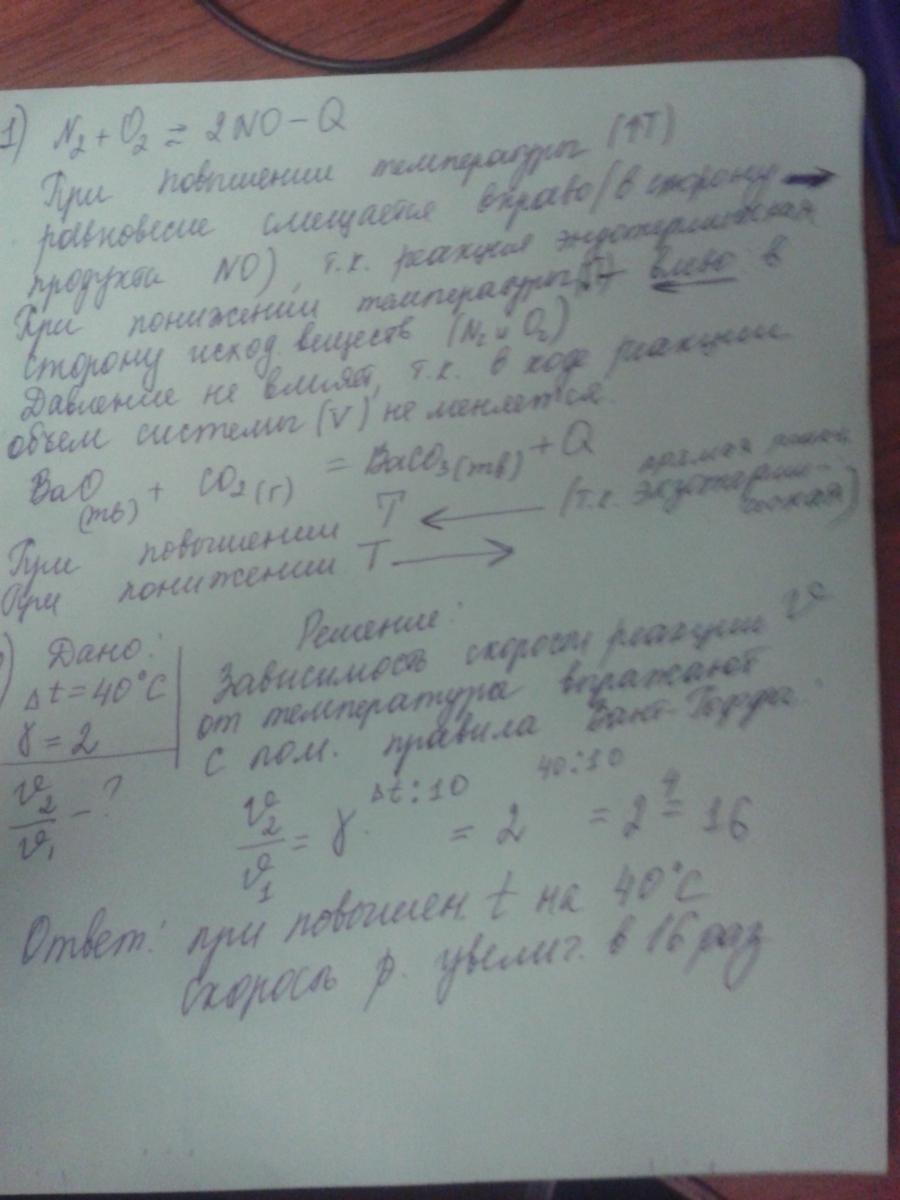 1) N₂ + O₂ ⇄ 2NO − Q
При повышении температуры (↑T)
равновесие смещается вправо (в сторону →
продукта NO), т.к. реакция эндотермическая
При понижении температуры ← влево в
сторону исход. веществ (N₂ и O₂)
Давление не влияет, т.к. в ходе реакции
объем системы (V) не меняется.
BaO (тв) + CO₂ (г) = BaCO₃ (тв) + Q
При повышении T ← (т.к. прямая экзотерми-
ческая)
При понижении T →
) Дано: Решение:
Δt = 40°C Зависимость скорости реакции v
γ = 2 от температуры выражают
с пом. правила Вант-Гоффа:
v₂/v₁ − ? v₂/v₁ = γ^(Δt:10) = 2^(40:10) = 2⁴ = 16
Ответ: при повышен t на 40°C
скорость р. увелич. в 16 раз